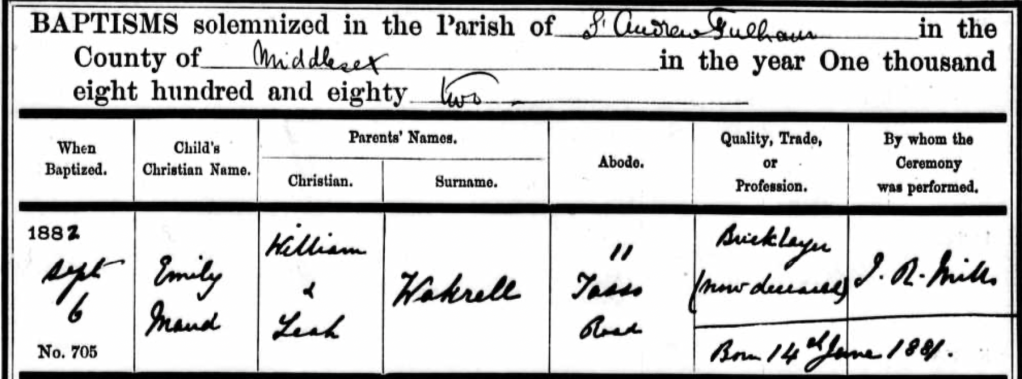 BAPTISMS solemnized in the Parish of St Andrew Fulham in the
County of Middlesex in the year One thousand
eight hundred and eighty two
When Baptized.
Child's Christian Name.
Parents' Names.
Christian.
Surname.
Abode.
Quality, Trade, or Profession.
By whom the Ceremony was performed.
1882
Sept
6
No. 705
Emily
Maud
William
&
Leah
Wakrell
11
Tasso
Road
Bricklayer
(now deceased)
J. R. Mills
Born 14th June 1881.